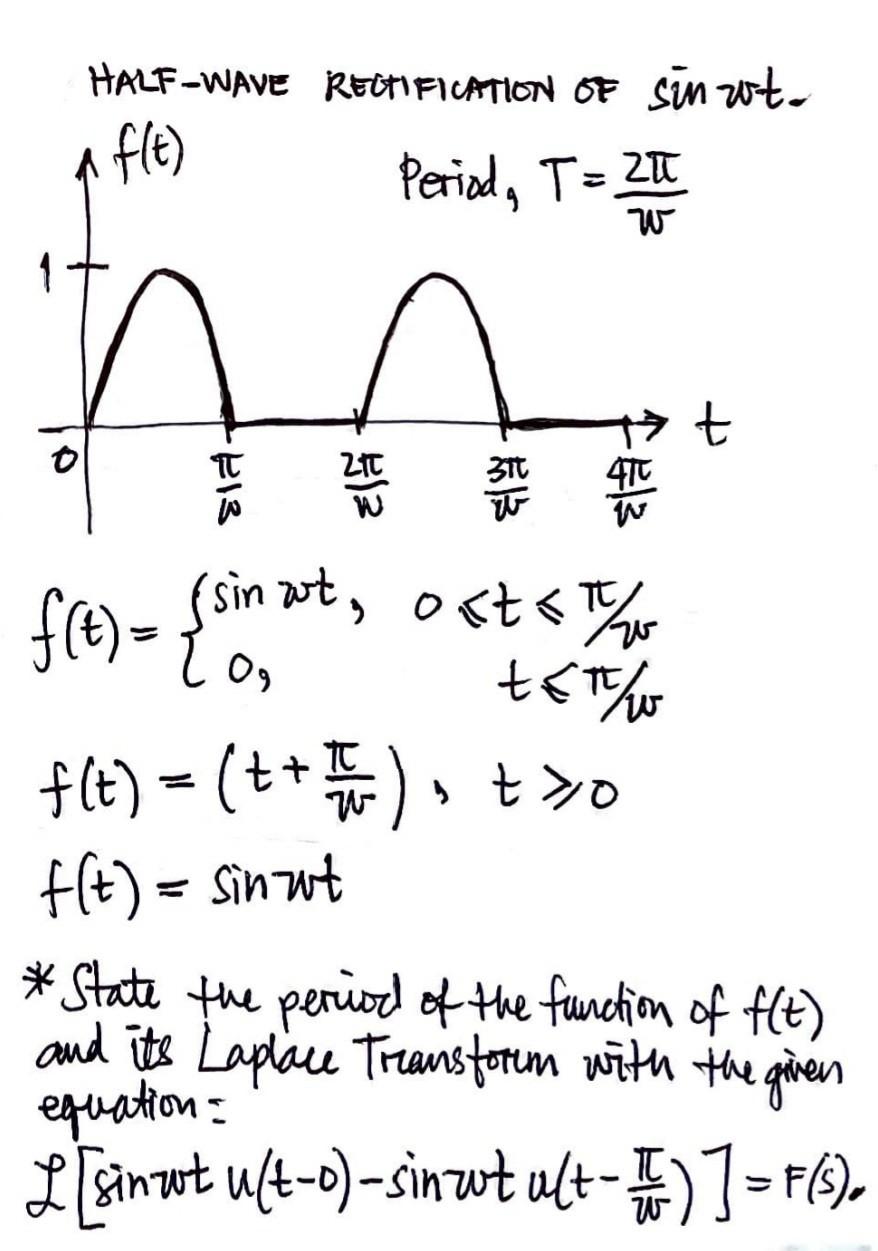 HALF-WAVE RECTIFICATION OF sin wt.
f(t)
Period, T = 2π/w
1
t
0
π/w 2π/w 3π/w 4π/w
f(t) = { sin wt, 0 ≤ t ≤ π/w
0, t ≤ π/w
f(t) = (t + π/w), t ≥ 0
f(t) = sin wt
* State the period of the function of f(t)
and its Laplace Transform with the given
equation:
ℒ[sin wt u(t-0) - sin wt u(t - π/w)] = F(s).